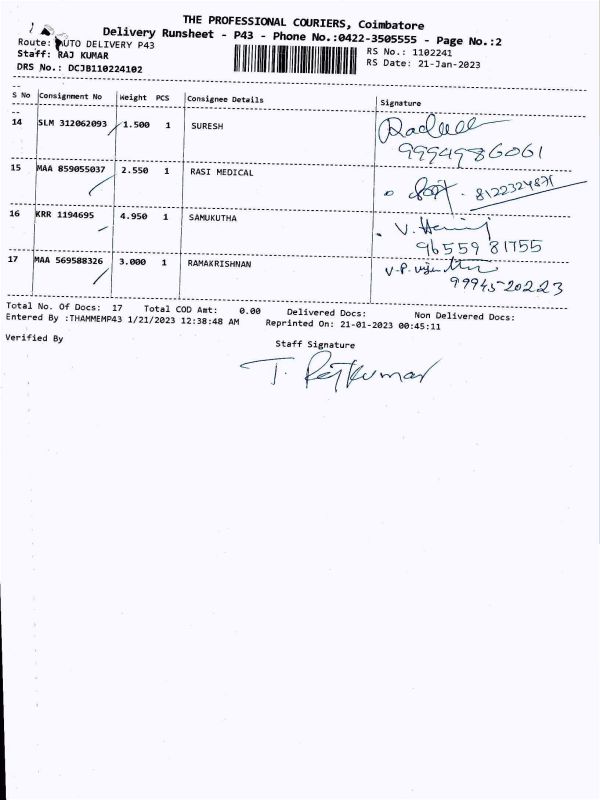 THE PROFESSIONAL COURIERS, Coimbatore
Delivery Runsheet - P43 - Phone No.:0422-3505555 - Page No.:2
Route: AUTO DELIVERY P43
Staff: RAJ KUMAR
DRS No.: DCJB110224102
RS No.: 1102241
RS Date: 21-Jan-2023
S No Consignment No Weight PCS Consignee Details Signature
14 SLM 312062093 1.500 1 SURESH
9994986061
15 MAA 859055037 2.550 1 RASI MEDICAL
8122324871
16 KRR 1194695 4.950 1 SAMUKUTHA V.
9655981755
17 MAA 569588326 3.000 1 RAMAKRISHNAN V.P.
9994520223
Total No. Of Docs: 17 Total COD Amt: 0.00 Delivered Docs: Non Delivered Docs:
Entered By :THAMMEMP43 1/21/2023 12:38:48 AM Reprinted On: 21-01-2023 00:45:11
Verified By Staff Signature
T. Rajkumar